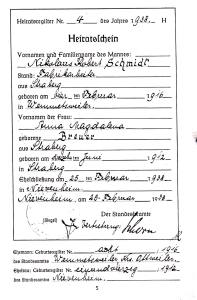 Heiratsregister Nr. 4 des Jahres 1938. H
Heiratsschein
Vornamen und Familienname des Mannes:
Nikolaus Robert Schmidt
Stand: Fabrikarbeiter
aus Straberg
geboren am vier Februar 1916
in Wemmetsweiler
Vornamen der Frau:
Anna Magdalena
geborene Bröwer
aus Straberg
geboren am Juni 1912
in Straberg
Eheschließung am 25. im Februar 1938.
in Nievenheim
Nievenheim, den 25. Februar 1938.
Der Standesbeamte
(Siegel)
In Vertretung:
Ehemann: Geburtsregister Nr. acht 1916
des Standesamtes Wemmetsweiler Krs. Ottweiler.
Ehefrau: Geburtsregister Nr. einundvierzig 1912
des Standesamtes Nievenheim.
5